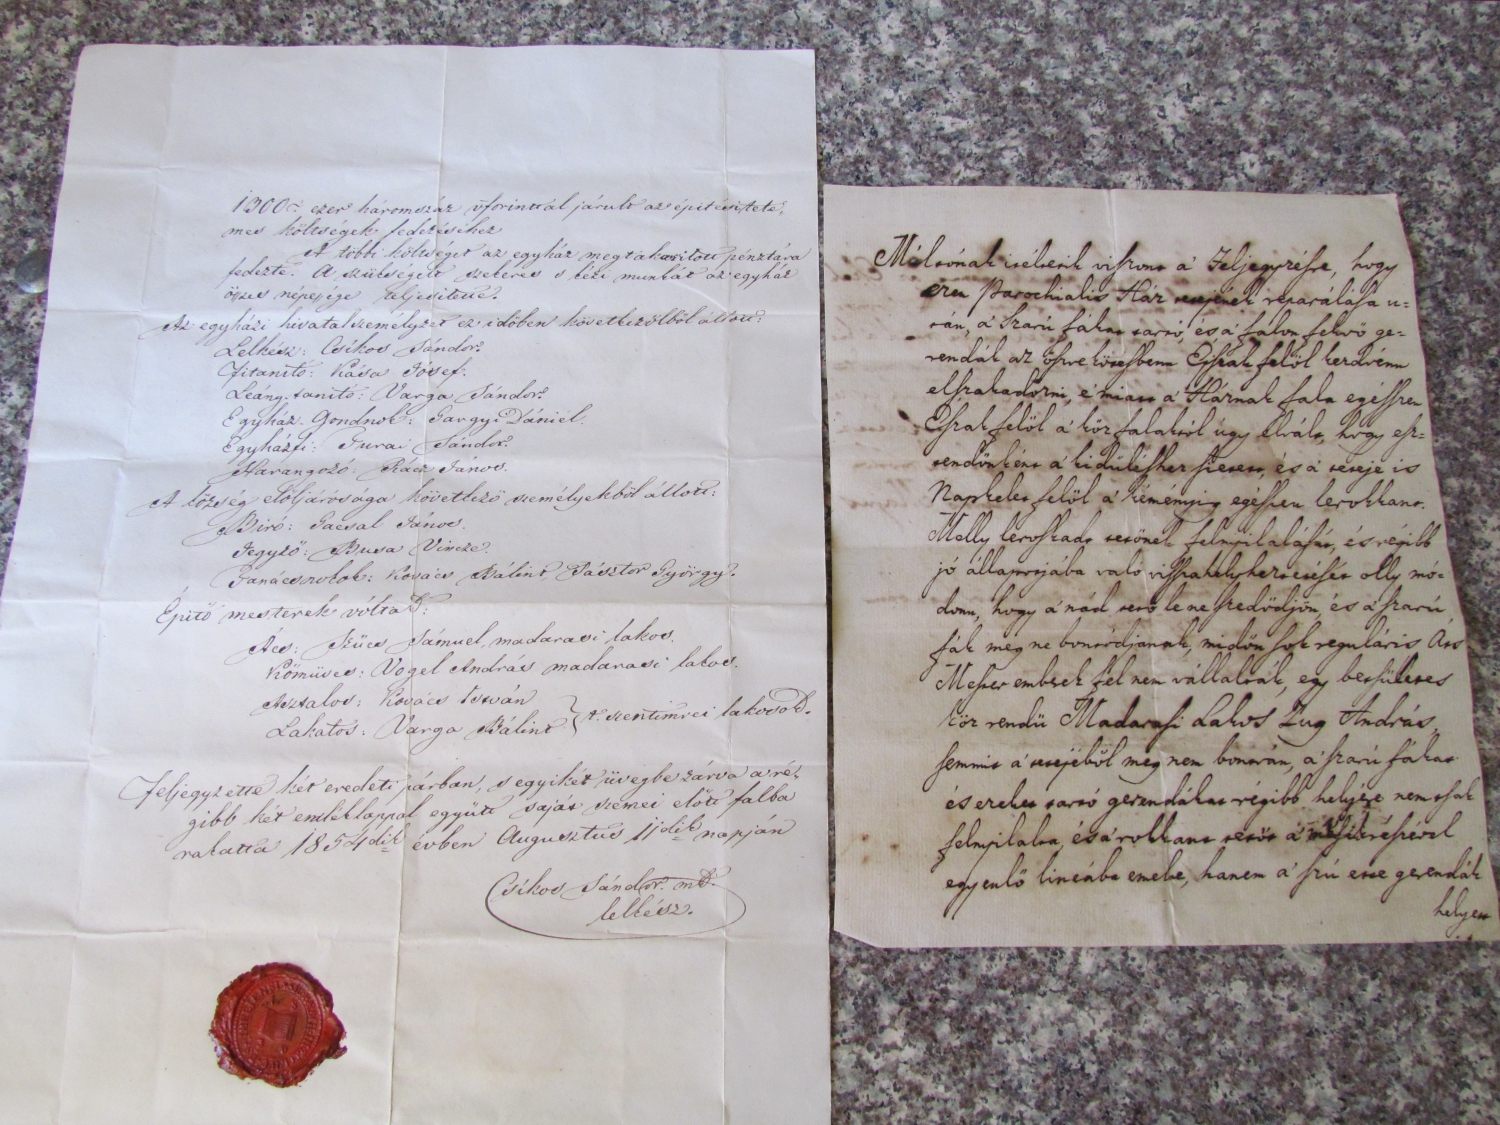 1300 ezer háromszáz vforinttal járult az építésitete,
mes költségek fedezéséhez
A többi költséget az egyház megtakarított pénztára
fedezte. A szükséges szekeres s kézi munkát az egyház
összes népessége teljesitette.
Az egyházi hivatalszemélyzet ez időben következőkből állott:
Lelkész: Csíkos Sándor.
Fitanító: Kása József.
Leány-tanitó: Varga Sándor.
Egyház Gondnok: Gargyi Dániel.
Egyházfi: Turai Sándor.
Harangozó: Rácz János.
A község előljárósága következő személyekből állott:
Biró: Gacsal János.
Jegyző: Busa Vincze.
Tanácsnokok: Kovács Bálint Pásztor György.
Épitő mesterek vóltak:
Ács: Szűcs Sámuel, madarasi lakos.
Kőmüves: Vogel András madarasi lakos.
Asztalos: Kovács István
Lakatos: Varga Bálint } t. szentimrei lakosok.
Feljegyzette két eredeti párban, s egyikét üvegbe zárva a ré,
gibb két emléklappal együtt saját szemei előtt falba
rakatta 1854dik évben Augusztus 11dik napján
Csíkos Sándor mk.
lelkész.
Méltónak ítéltetik viszont a Feljegyzésre, hogy
ezen Parochialis Ház reparálása u-
tán, a Szarú fákat tartó, és a falon fekvő ge-
rendák az öszve Észak felöl kezdvenn
elszakadozni, é miatt a Háznak fala egészszen
Észak felöl a köz falaktól úgy elvált, hogy esz-
tendőnként a kidüléshez sietett, és a teteje is
Napkelet felöl a kéményig egészszen lerokkant.
Melly leroskadt tetőnek felmpilalását, és régibb
jó állapotjába való viszszahelyheztetését olly mó-
donn, hogy a nád tető le ne szedődjön, és a szarú
fák meg ne bontódjanak, midőn sok reguláris Áts
Mester emberek fel nem vállalták, egy betsületes
köz rendü Madarasi Lakos Zug András,
semmit a tetejéből meg nem bontván, a szarú fákat
és ezeket tartó gerendákat régibb helyére nem tsak
felmpilalta, és a rokkant tetőt a
egyenlő lineába emelte, hanem a gerendák
helyett